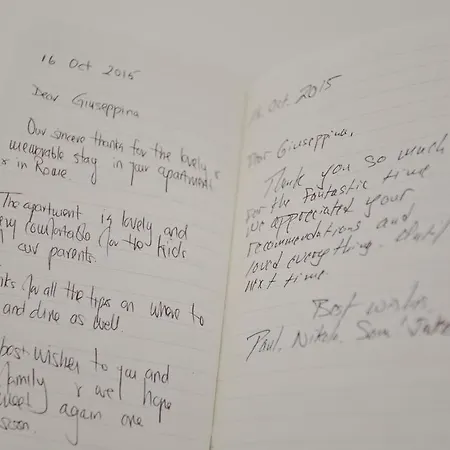 16 Oct 2015
Dear Giuseppina
Our sincere thanks for the lovely &
memorable stay in your apartment
in Rome.
The apartment is lovely and
comfortable for two kids
our parents.
for all the tips on where to
and dine as well
best wishes to you and
family & we hope
again one
soon.
Oct. 2015
Dear Giuseppina,
Thank you so much
for the fantastic time
we appreciated your
recommendations and
loved everything. Until
next time.
Best wishes,
Paul, Nikola, Sam